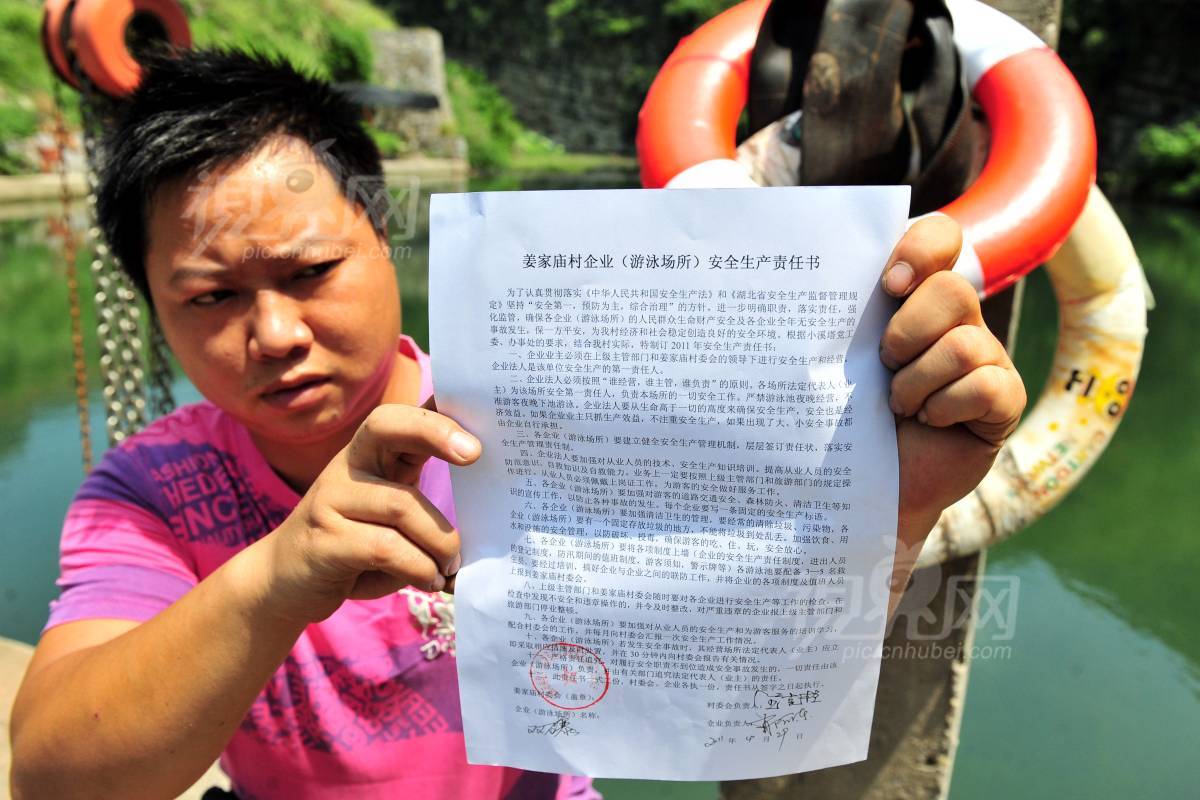 姜家庙村企业（游泳场所）安全生产责任书
为了认真贯彻落实《中华人民共和国安全生产法》和《湖北省安全生产监督管理规
定》坚持“安全第一，预防为主，综合治理”的方针。进一步明确职责，落实责任，强
化监管，确保各企业（游泳场所）的人民群众生命财产安全及各企业全年无安全生产的
事故发生。保一方平安，为我村经济和社会稳定创造良好的安全环境。根据小溪塔党工
委、办事处的要求，结合我村实际，特制订 2011 年安全生产责任书：
一、企业业主必须在上级主管部门和姜家庙村委会的领导下进行安全生产和经营，
企业法人是该单位安全生产的第一责任人。
二、企业法人必须按照“谁经营，谁主管，谁负责”的原则，各场所法定代表人（业
主）为该场所安全第一责任人，负责本场所的一切安全工作。严禁游泳池夜晚经营，不
准游客夜晚下池游泳。企业法人要从生命高于一切的高度来确保安全生产，安全也是经
济效益。如果企业业主只抓生产效益，不注重安全生产，如果出现了大、小安全事故都
由企业自行承担。
三、各企业（游泳场所）要建立健全安全生产管理机制，层层签订责任状，落实安
全生产管理责任制。
四、企业法人要加强对从业人员的技术，安全生产知识培训。提高从业人员的安全
防范意识、自救知识及自救能力。业务上一定要按照上级主管部门和旅游部门的规定操
作进行。从业人员必须佩戴上岗证工作，为游客的安全做好服务工作。
五、各企业（游泳场所）要加强对游客的道路交通安全、森林防火、清洁卫生等知
识的宣传工作，以防止各种事故的发生。每个企业要写一条固定的安全生产标语。
六、各企业（游泳场所）要加强清洁卫生的管理，要经常的清除垃圾、污染物，各
企业（游泳场所）要有一个固定存放垃圾的地方，不能将垃圾到处乱丢。加强饮食、用
水和设施的安全管理，以防破坏、投毒，确保游客的吃、住、玩，安全放心。
七、各企业（游泳场所）要将各项制度上墙（企业的安全生产责任制度，进出人员
的登记制度，防汛期间的值班制度，游客须知、警示牌等）各游泳池要配备 3—5 名救
生员，要经过培训，搞好企业与企业之间的联防工作，并将企业的各项制度及值班人员
上报到姜家庙村委会。
八、上级主管部门和姜家庙村委会随时要对各企业进行安全生产等工作的检查，在
检查中发现不安全和违章操作的，并令及时整改，对严重违章的企业报上级主管部门和
旅游部门停业整顿。
九、各企业（游泳场所）要加强对从业人员的安全生产和为游客服务的培训学习，
配合村委会的工作，并每月向村委会汇报一次安全生产工作情况。
十、各企业（游泳场所）若发生安全事故时，其经营场所法定代表人（业主）应立
即采取相应措施及时处置，并在 30 分钟内向村委会报告有关情况。
严格责任追究，对履行安全职责不到位造成安全事故发生的，一切责任由该
企业（游泳场所）负责，并由有关部门追究法定代表人（业主）的责任。
此责任书一式二份，村委会、企业各执一份，责任书从签字之日起执行。
姜家庙村委会（盖章）：
村委会负责人：
企业（游泳场所）名称：
企业负责人：
2011 年 4 月 29 日
视界网
pic.cnhubei.com
视界网
pic.cnhubei.com
FASHION